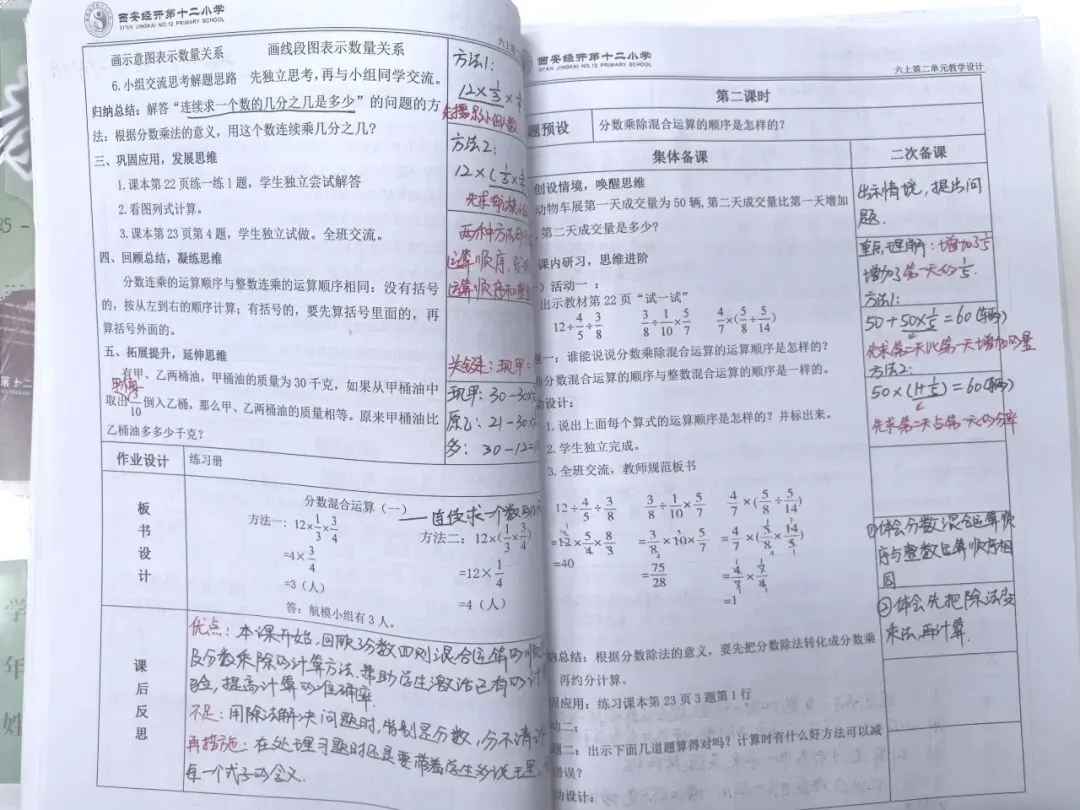 西安经开第十二小学
XI'AN JINGKAI NO.12 PRIMARY SCHOOL
画示意图表示数量关系 画线段图表示数量关系
6.小组交流思考解题思路 先独立思考,再与小组同学交流。
归纳总结:解答“连续求一个数的几分之几是多少”的问题的方
法:根据分数乘法的意义,用这个数连续乘几分之几?
三、巩固应用,发展思维
1.课本第22页练一练1题,学生独立尝试解答
2.看图列式计算。
3.课本第23页第4题,学生独立试做。全班交流。
四、回顾总结,凝练思维
分数连乘的运算顺序与整数连乘的运算顺序相同:没有括号
的,按从左到右的顺序计算;有括号的,要先算括号里面的,再
算括号外面的。
五、拓展提升,延伸思维
有甲、乙两桶油,甲桶油的质量为30千克,如果从甲桶油中
取出3/10倒入乙桶,那么甲、乙两桶油的质量相等。原来甲桶油比
乙桶油多多少千克?
方法1:
12×1/3×
方法2:
12×(1/3×
两种方法
运算顺序
关键:现甲=
现甲:30-30×
原乙:21-30×
多:30-12=
作业设计 练习册
板书设计
分数混合运算(一)
——连续求一个数的几
方法一:12×1/3×3/4
=4×3/4
=3(人)
方法二:12×(1/3×3/4)
=12×1/4
=4(人)
答:航模小组有3人。
课后反思
优点:本课开始,回顾分数四则混合运算的顺
及分数乘除的计算方法,帮助学生激活已有的计
验,提高计算的准确率.
不足:用除法解决问题时,特别是分数,分不清
再措施:在处理习题时还是要带着学生多说
每一个式子的含义.
西安经开第十二小学
XI'AN JINGKAI NO.12 PRIMARY SCHOOL
六上第二单元教学设计
第二课时
题预设 分数乘除混合运算的顺序是怎样的?
集体备课 二次备课
创设情境,唤醒思维
动物车展第一天成交量为50辆,第二天成交量比第一天增加
,第二天成交量是多少?
课内研习,思维进阶
)活动一:
出示教材第22页“试一试”
12÷4/5÷3/8 3/8÷1/10×5/7 4/7×(5/8÷5/14)
题一:谁能说说分数乘除混合运算的运算顺序是怎样的?
分数混合运算的顺序与整数混合运算的顺序是一样的。
动设计:
1.说出上面每个算式的运算顺序是怎样的?并标出来。
2.学生独立完成。
3.全班交流,教师规范板书
12÷4/5÷3/8 3/8÷1/10×5/7 4/7×(5/8÷5/14)
=12×5/4×8/3 =3/8×10×5/7 =4/7×(5/8×14/5)
=40 =75/28 =4/7×7/4
=1
纳总结:根据分数除法的意义,要先把分数除法转化成分数乘
,再约分计算。
固应用:练习课本第23页3题第1行
动二:
题二:出示下面几道题算得对吗?计算时有什么好方法可以减
错误?
动设计:
出示情境,提出问
题.
重点理解:增加了1/5
增加了第一天的1/5.
方法1:
50+50×1/5=60(辆)
先求第二天比第一天增加的量
方法2:
50×(1+1/5)=60(辆)
先求第二天占第一天的分率
①体会分数混合运算顺
序与整数运算顺序相
同
②体会先把除法变
乘法,再计算.